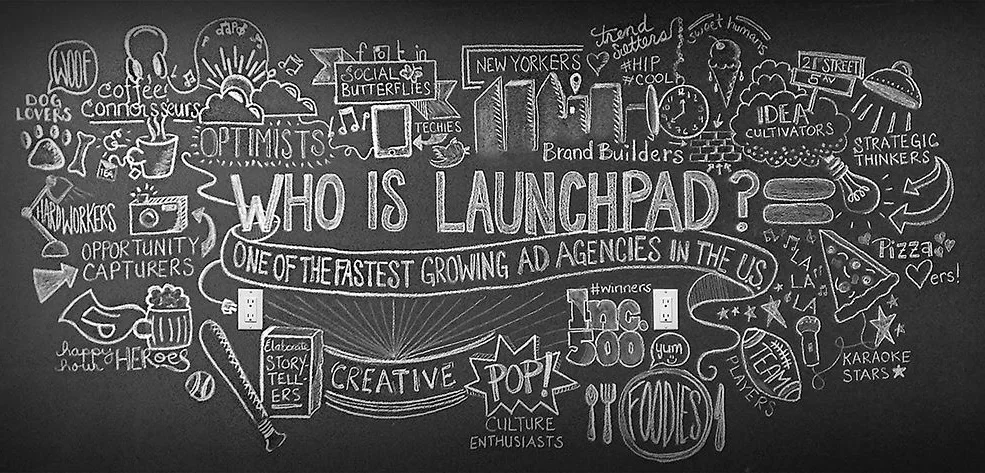 WOOF
DOG
LOVERS
Coffee
Connoisseurs
TEA
OPTIMISTS
f t in
SOCIAL
BUTTERFLIES
TECHIES
NEW YORKERS
Brand Builders
trend
setters
#HIP
#COOL
sweet humans
IDEA
CULTIVATORS
21 STREET
5 AV
STRATEGIC
THINKERS
HARDWORKERS
OPPORTUNITY
CAPTURERS
WHO IS LAUNCHPAD?
ONE OF THE FASTEST GROWING AD AGENCIES IN THE US
Pizza
ers!
LA
LA
LA
happy
hour HEROES
Elaborate
STORY-
TELL-
ERS
CREATIVE
POP!
CULTURE
ENTHUSIASTS
#winners
Inc.
500
yum
FOODIES
TEAM
PLAYERS
KARAOKE
STARS